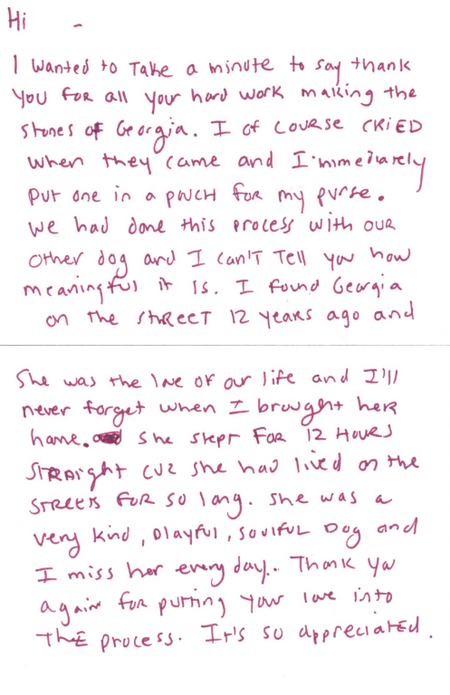 Hi -
I wanted to take a minute to say thank
you for all your hard work making the
stones of Georgia. I of course cried
when they came and I immediately
put one in a pouch for my purse.
We had done this process with our
other dog and I can't tell you how
meaningful it is. I found Georgia
on the street 12 years ago and
she was the love of our life and I'll
never forget when I brought her
home. She slept for 12 hours
straight cuz she had lived on the
streets for so long. She was a
very kind, playful, soulful dog and
I miss her every day.. Thank you
again for putting your love into
the process. It's so appreciated.